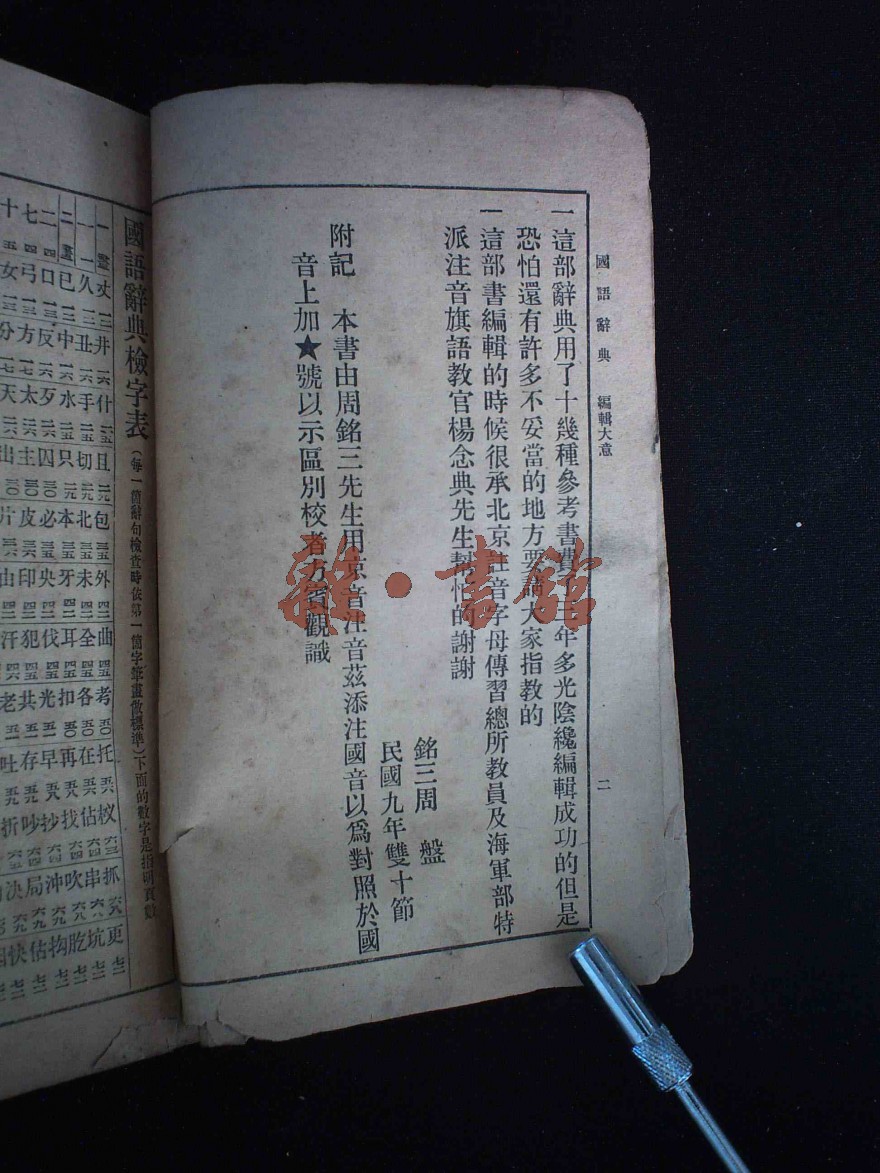 國語辭典 編輯大意 二
一這部辭典用了十幾種參考書費了三年多光陰纔編輯成功的但是
恐怕還有許多不妥當的地方要請大家指教的
一這部書編輯的時候很承北京注音字母傳習總所教員及海軍部特
派注音旗語教官楊念典先生幫忙的謝謝
銘三周 盤
民國九年雙十節
附記 本書由周銘三先生用京音注音茲添注國音以爲對照於國
音上加★號以示區別校者方賓觀識
雜·書館
國語辭典檢字表(每一箇辭句檢查時依第一箇字筆畫做標準)下面的數字是指明頁數
一畫 丈 井 什 且 包 外 曲 考 托 杈 抓 更
一 久 丑 手 切 北 未 全 各 在 估 串 坑
二畫 已 中 水 只 本 牙 耳 扣 再 找 吹
二 口 反 歹 囚 必 央 伐 光 早 抄 沖
七 弓 方 太 主 皮 印 犯 共 存 吵 局 估
十 女 分 天 出 片 由 汗 老 吐 折 決 快